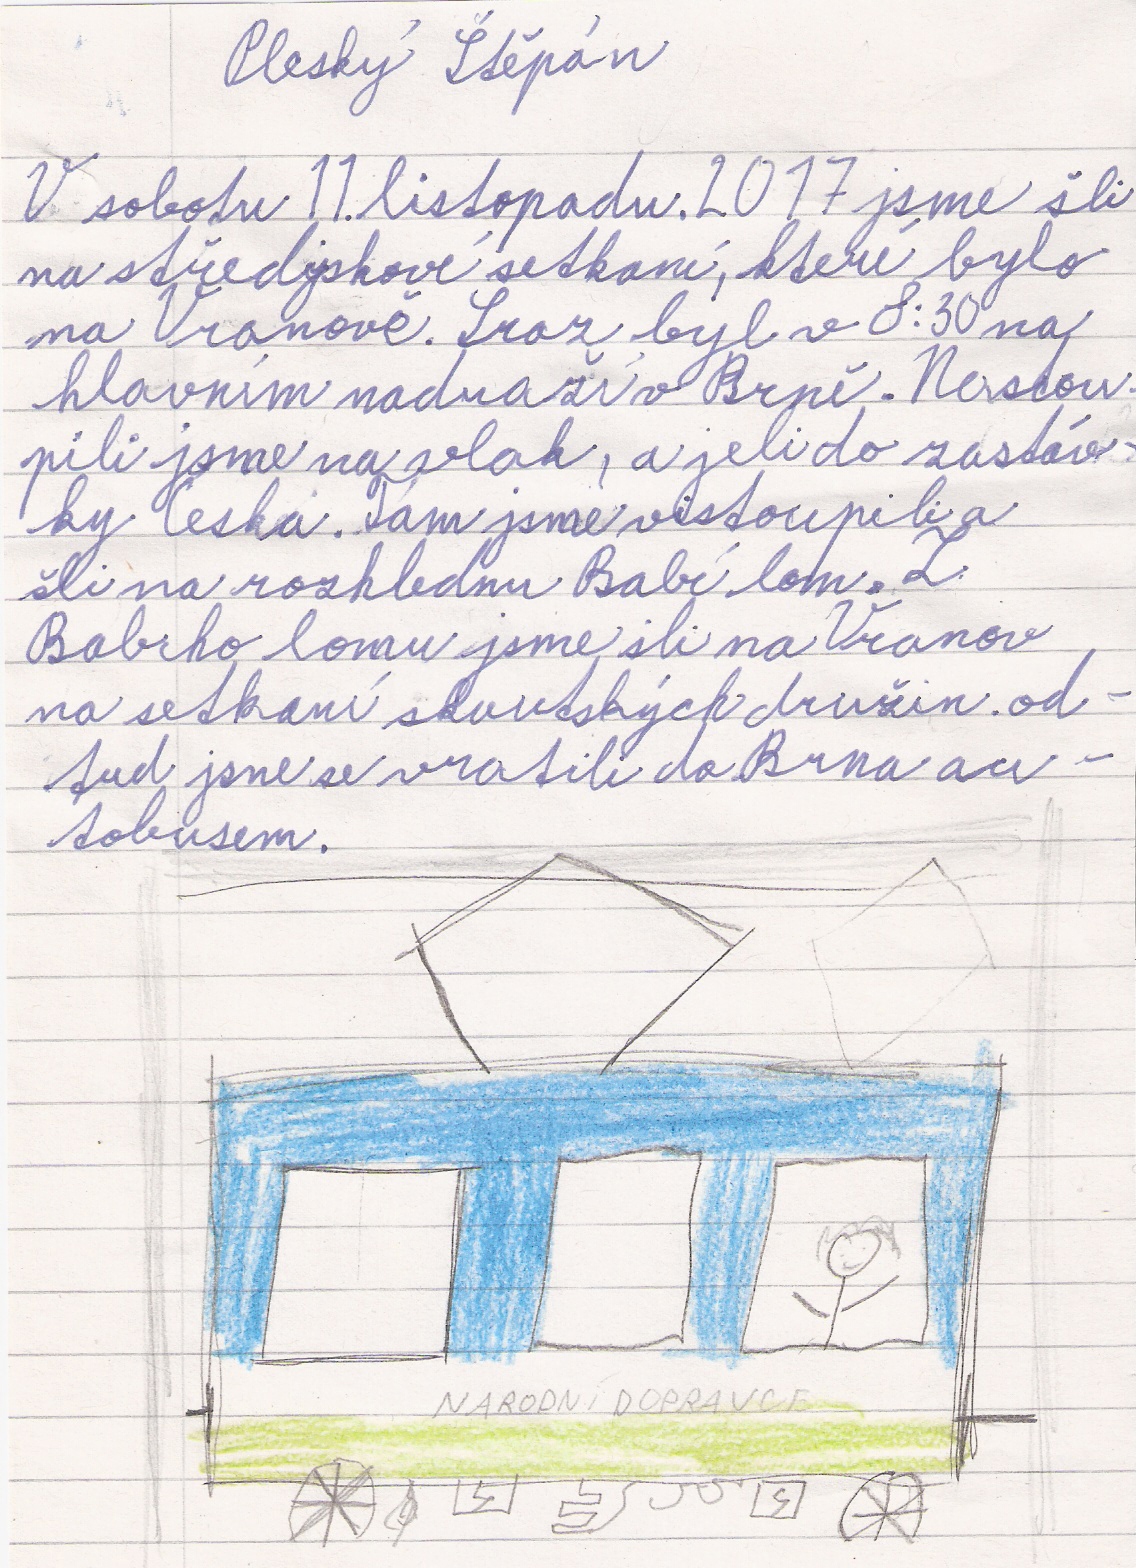 Pleský Štěpán
V sobotu 11. listopadu. 2017 jsme šli
na střediskové setkaní, které bylo
na Vranově. Sraz byl v 8:30 na
hlavním nadraží v Brně. Nastou-
pili jsme na vlak, a jeli do zastáv-
ky Česká. Tam jsme vistoupili a
šli na rozhlednu Babí lom. Z
Babího lomu jsme šli na Vranov
na setkaní skautských družin. od-
tud jsme se vratili do Brna au-
tobusem.
NÁRODNÍ DOPRAVCE